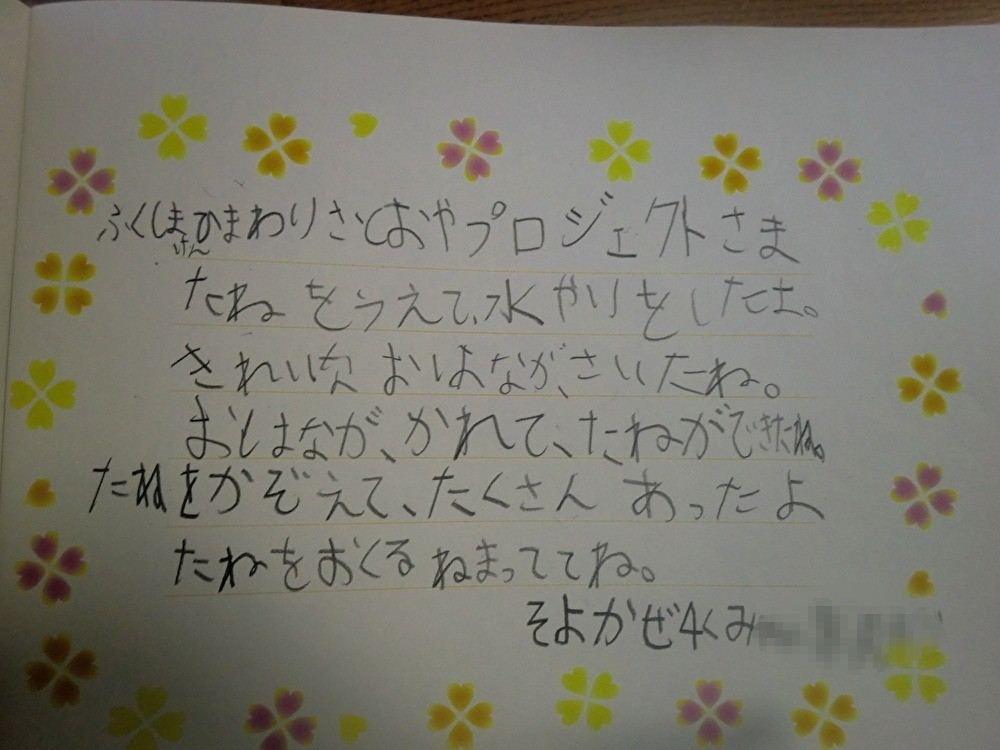 ふくしまひまわりさとおやプロジェクトさま
けん
たねをうえて、水やりをしたよ。
きれいな おはなが、さいたね。
おはなが、かれて、たねができたね。
たねをかぞえて、たくさん あったよ
たねをおくる ねまっててね。
そよかぜ4くみ